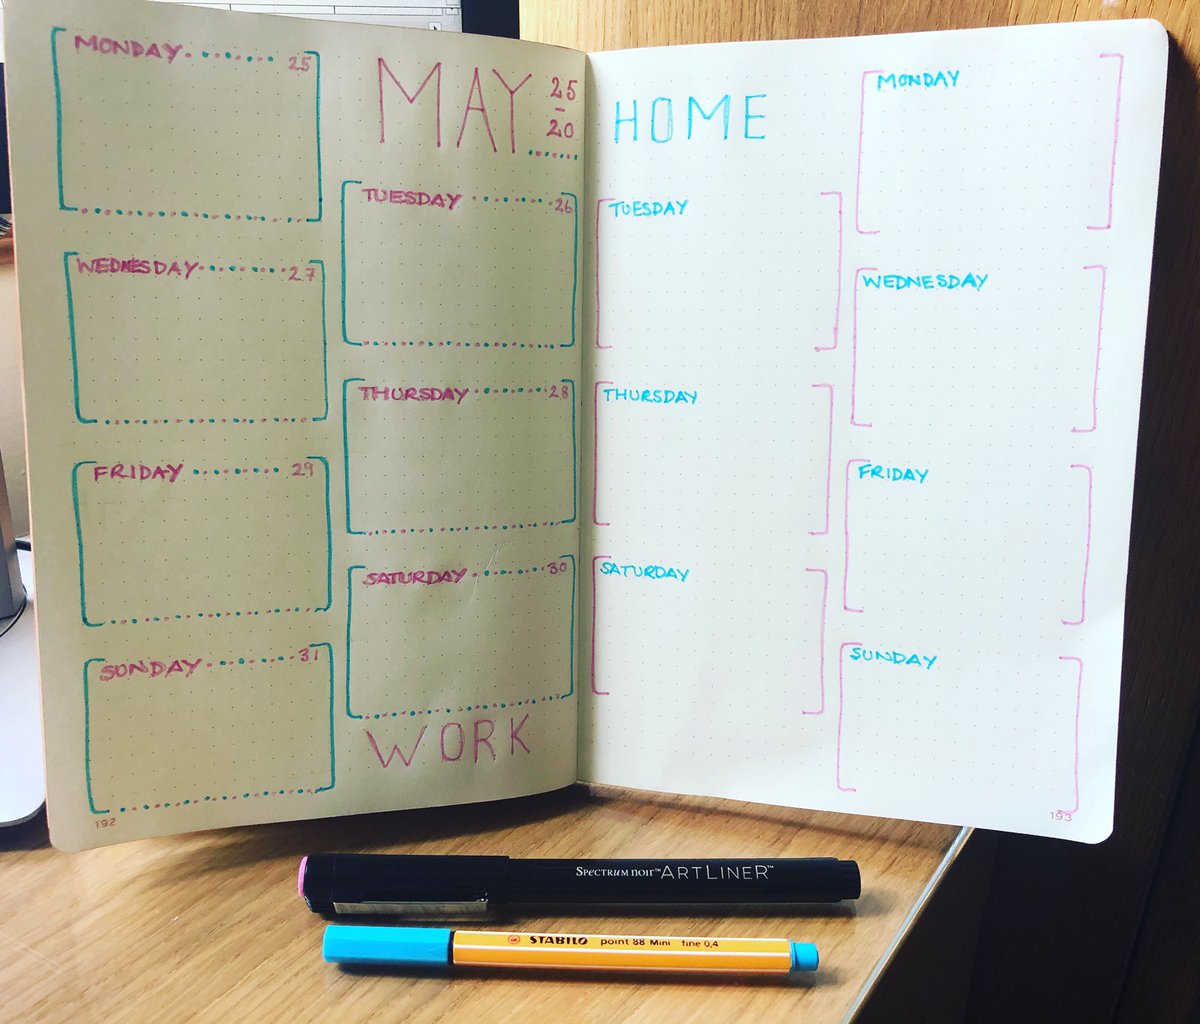 MONDAY 25
MAY 25
–
20
TUESDAY 26
WEDNESDAY 27
THURSDAY 28
FRIDAY 29
SATURDAY 30
SUNDAY 31
WORK
192
HOME
MONDAY
TUESDAY
WEDNESDAY
THURSDAY
FRIDAY
SATURDAY
SUNDAY
193
SPECTRUM NOIR™ ARTLINER™
STABILO point 88 Mini fine 0,4